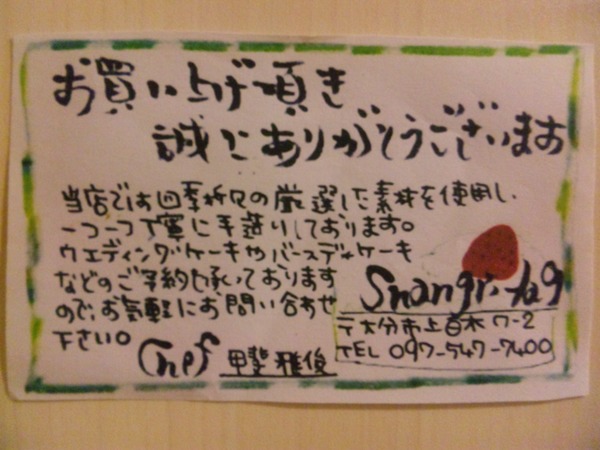 お買い上げ頂き
誠にありがとうございます
当店では四季折々の厳選した素材を使用し、
一つ一つ丁寧に手造りしております。
ウエディングケーキやバースディケーキ
などのご予約も承っております
ので、お気軽にお問い合わせ
下さい。
Chef 甲斐 雅俊
Shangri-la
〒大分市上白木ワ-2
TEL 097-547-7400